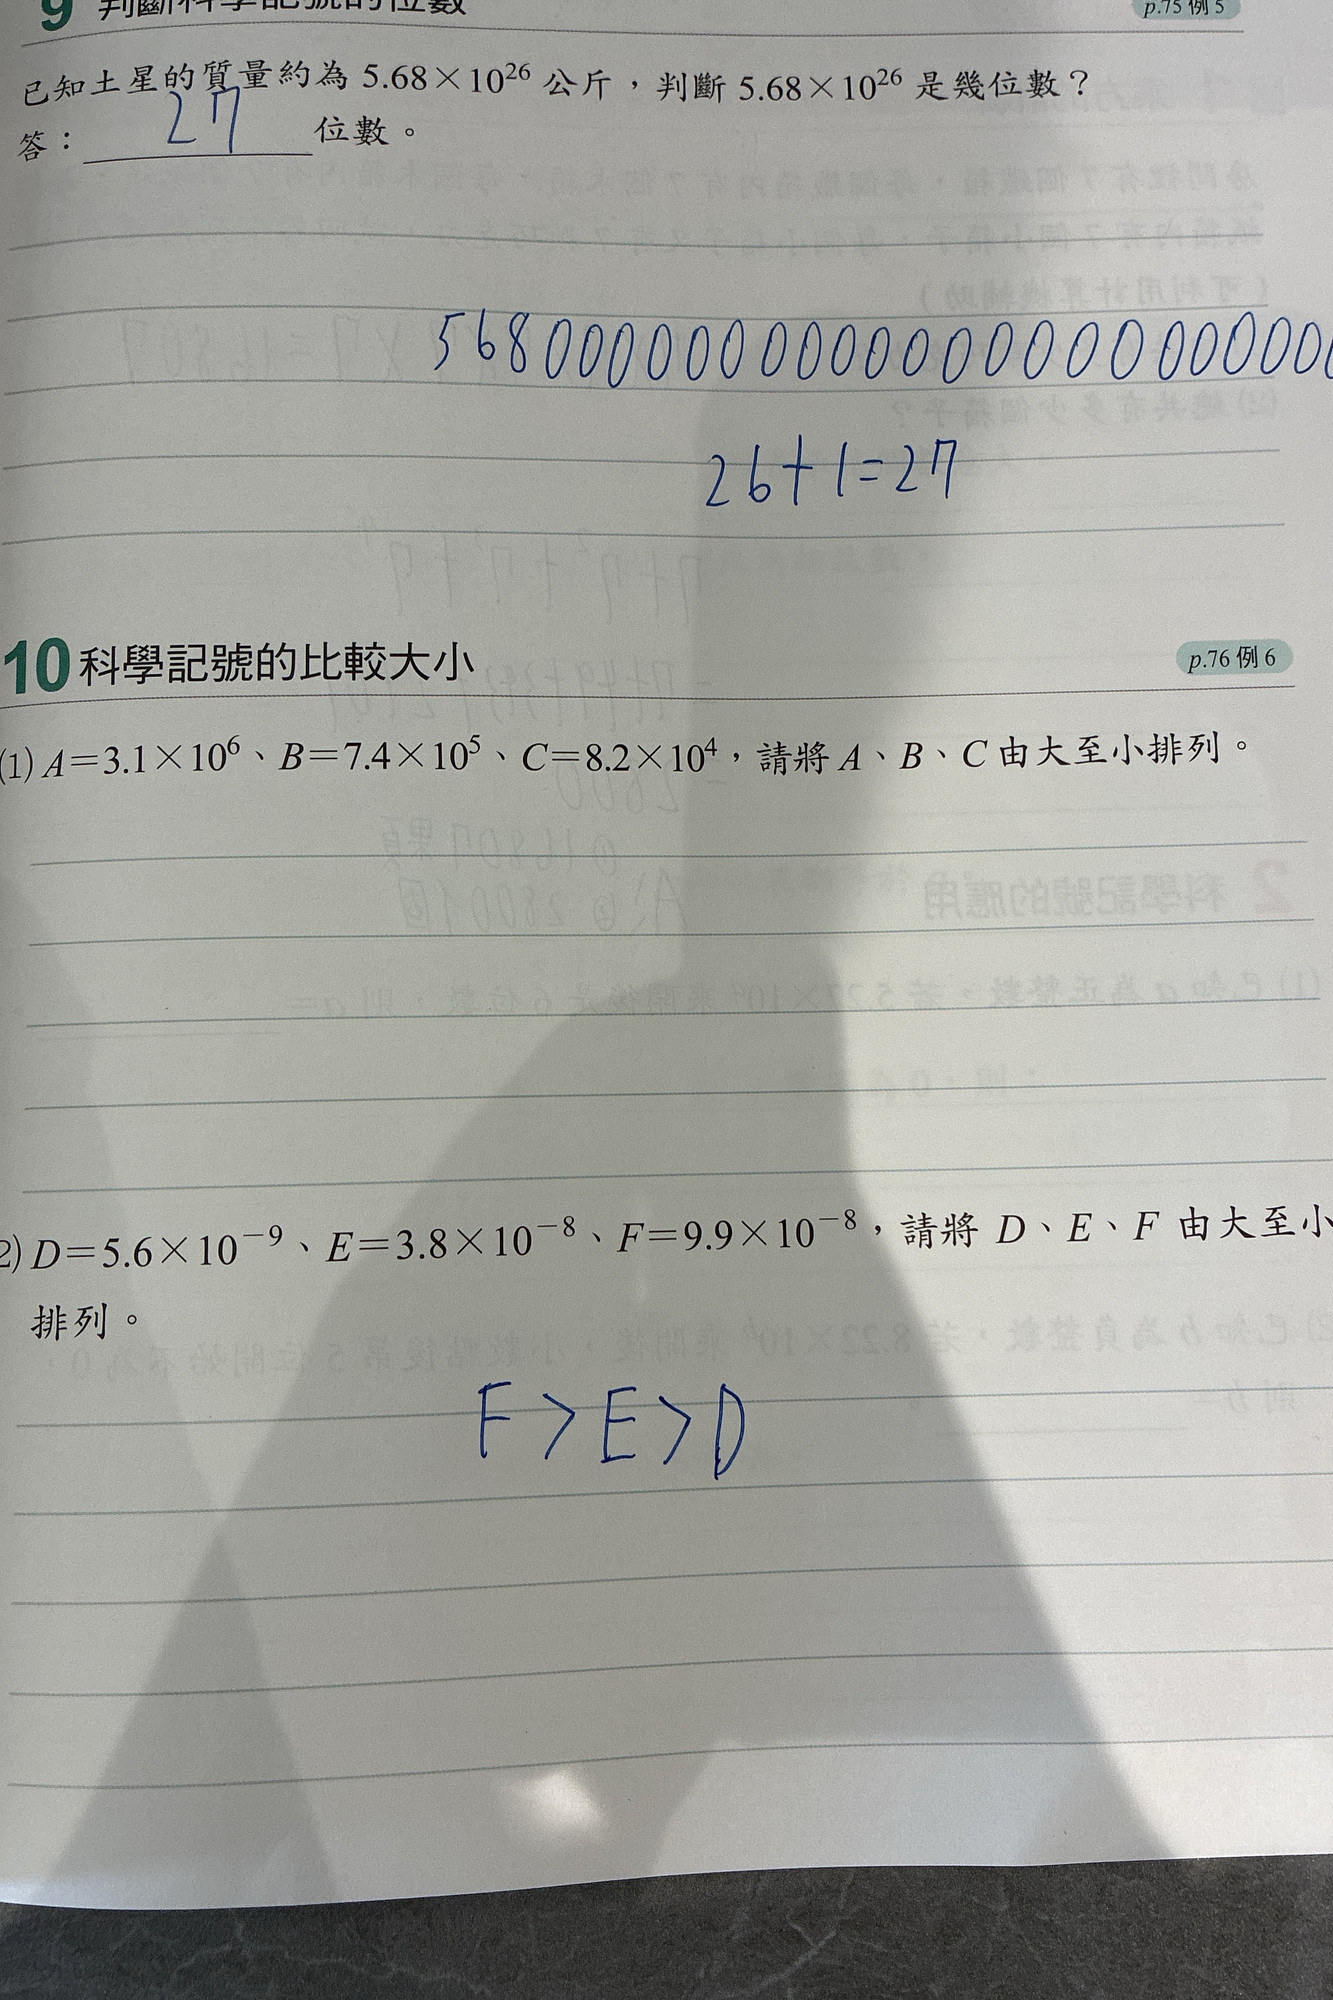 9 判斷科學記號的位數
p.75 例 5
已知土星的質量約為 5.68×10²⁶ 公斤，判斷 5.68×10²⁶ 是幾位數？
答： 27 位數。
568000000000000000000000
26+1=27
10 科學記號的比較大小
p.76 例 6
(1) A=3.1×10⁶、B=7.4×10⁵、C=8.2×10⁴，請將 A、B、C 由大至小排列。
2) D=5.6×10⁻⁹、E=3.8×10⁻⁸、F=9.9×10⁻⁸，請將 D、E、F 由大至小
排列。
F>E>D